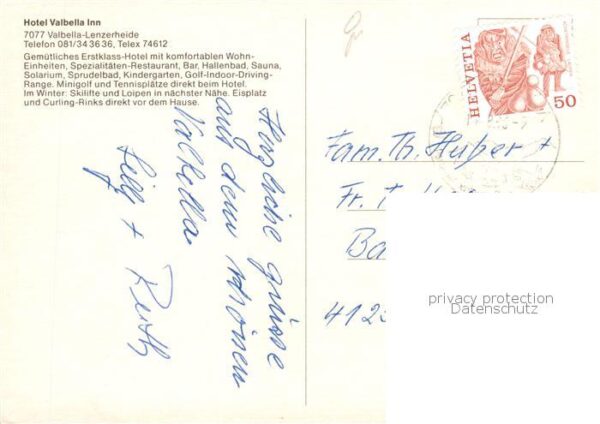 Hotel Valbella Inn
7077 Valbella-Lenzerheide
Telefon 081/34 36 36, Telex 74612
Gemütliches Erstklass-Hotel mit komfortablen Wohn-
Einheiten, Spezialitäten-Restaurant, Bar, Hallenbad, Sauna,
Solarium, Sprudelbad, Kindergarten, Golf-Indoor-Driving-
Range. Minigolf und Tennisplätze direkt beim Hotel.
Im Winter: Skilifte und Loipen in nächster Nähe. Eisplatz
und Curling-Rinks direkt vor dem Hause.
Herzliche grüsse
aus dem schönen
Valbella
+ Ruth
HELVETIA
50
Fam. Th. Huber +
Fr.
Ba
412
privacy protection
Datenschutz